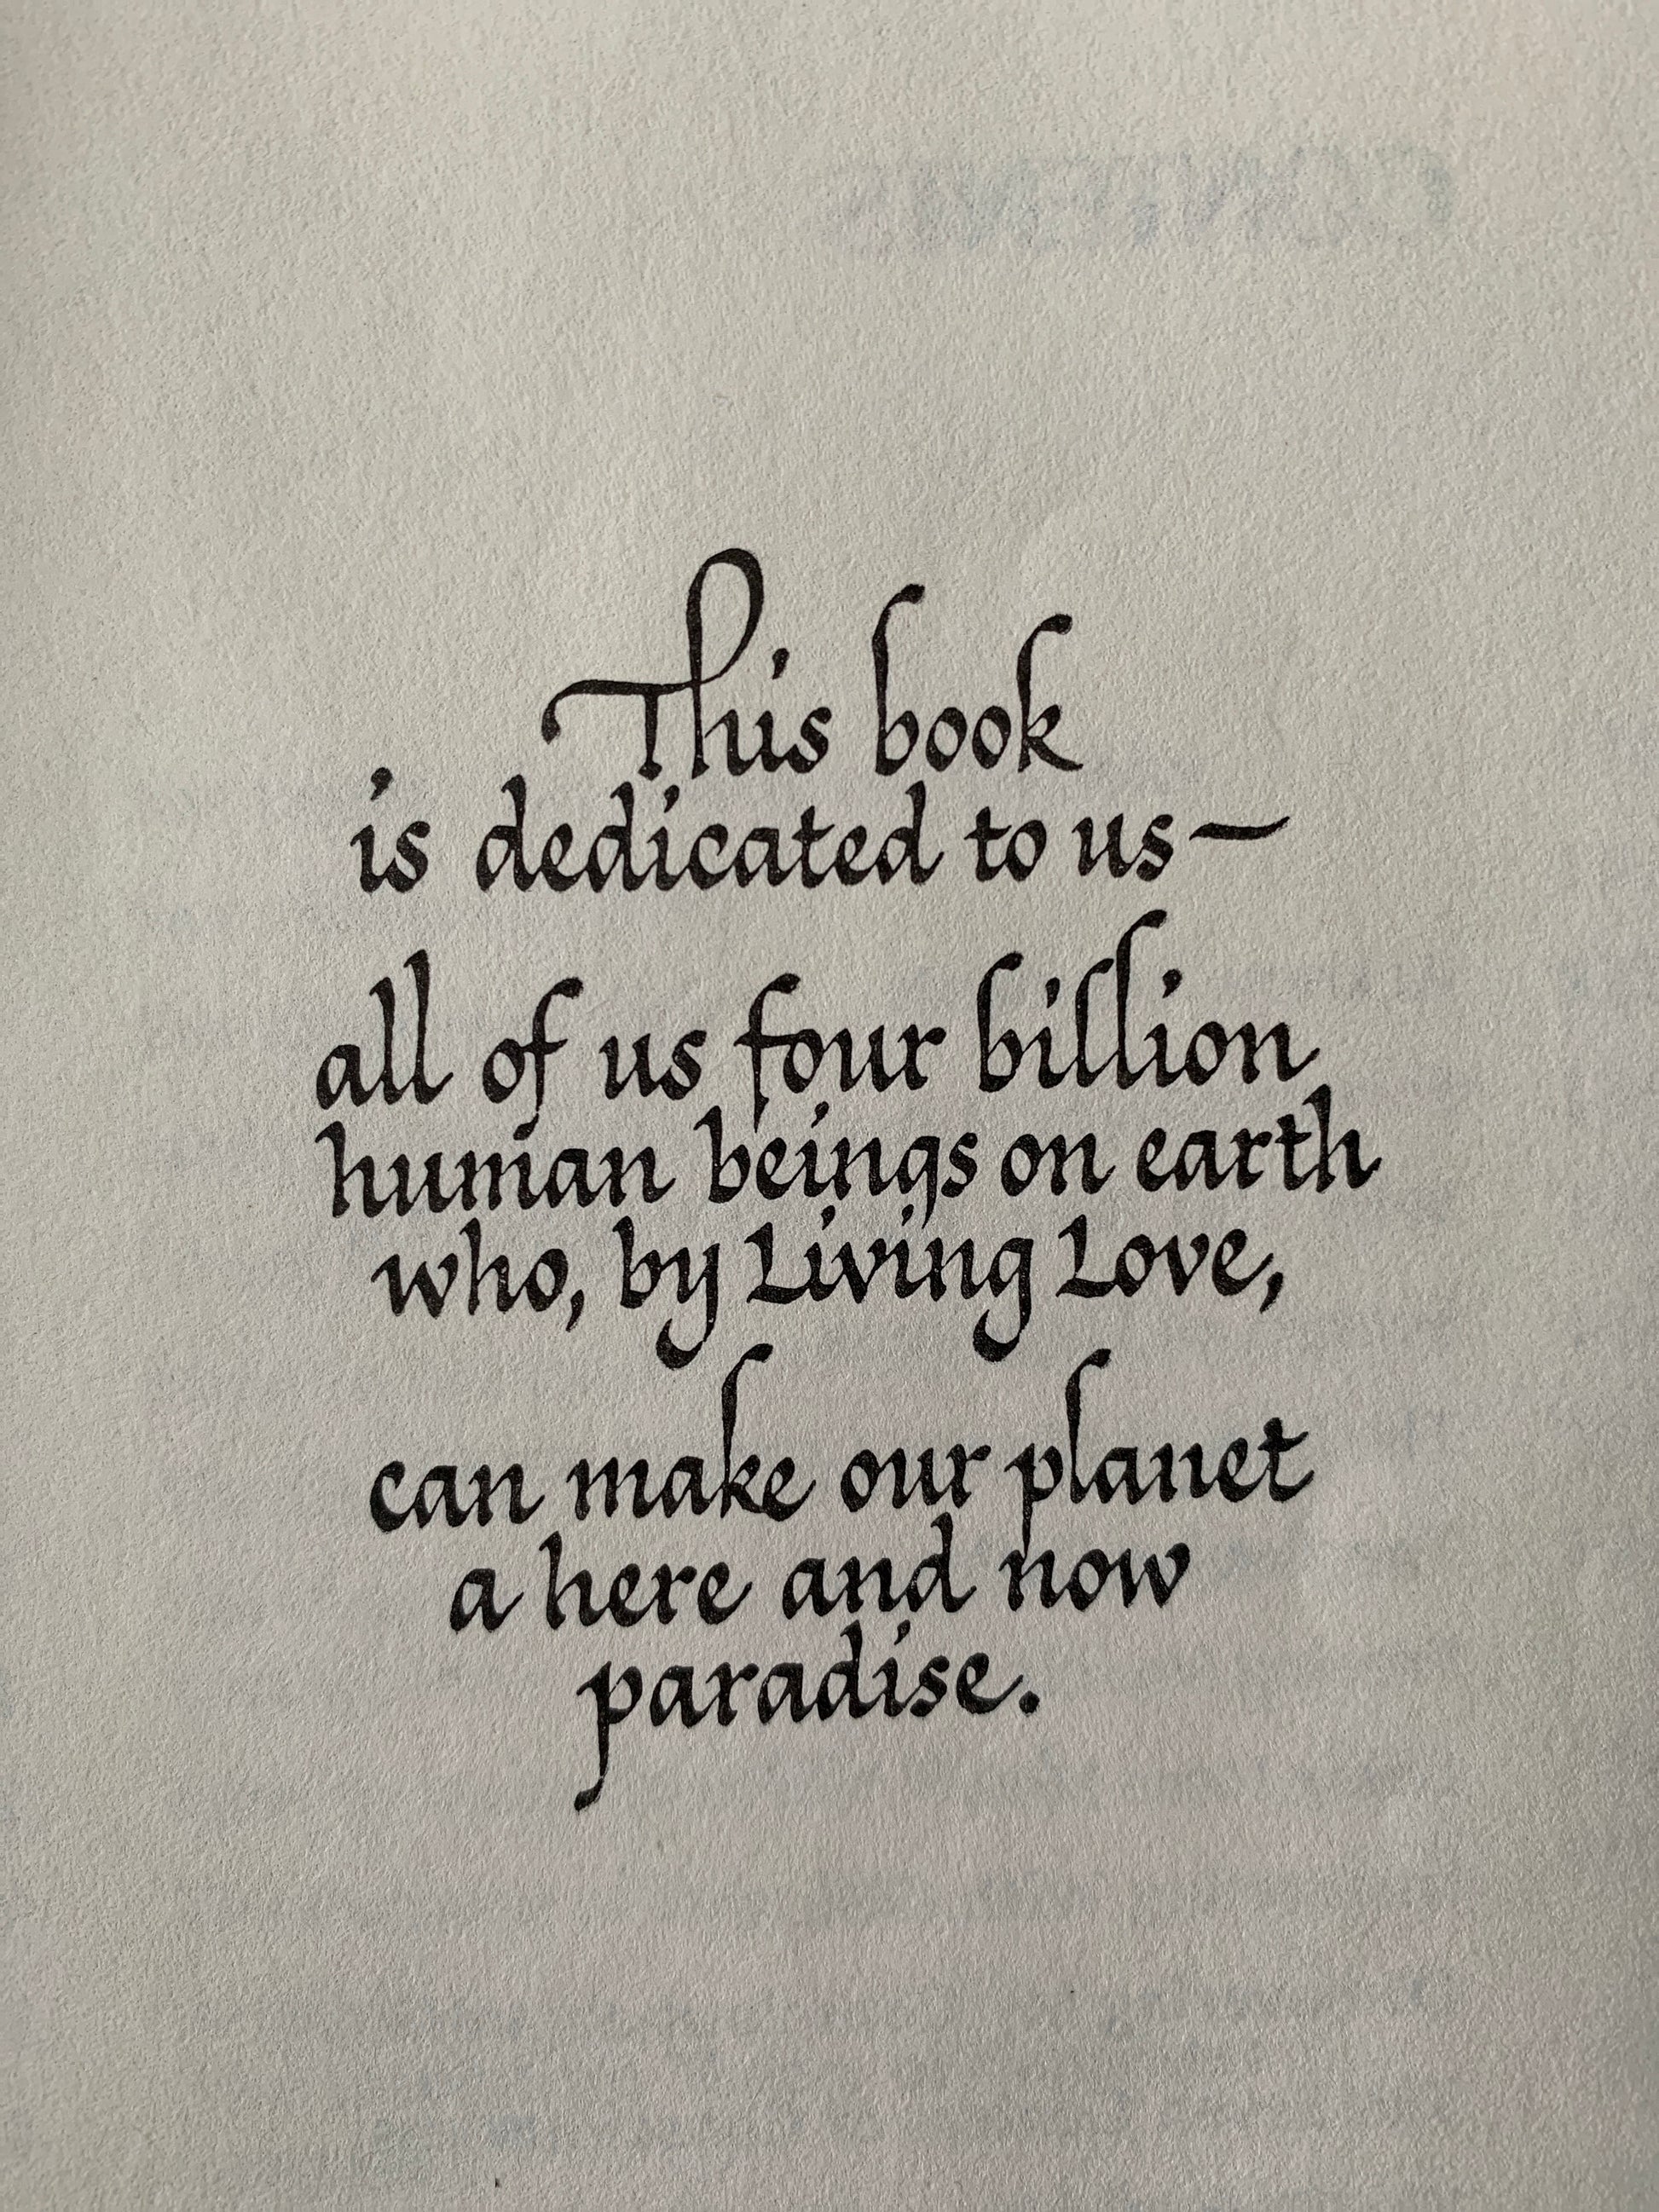 This book
is dedicated to us—
all of us four billion
human beings on earth
who, by Living Love,
can make our planet
a here and now
paradise.